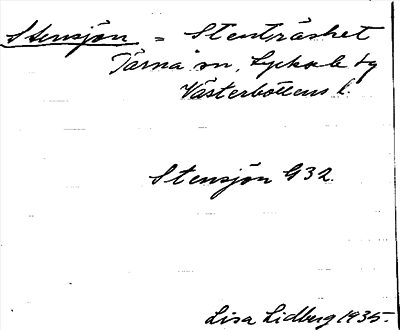 Stensjön = Stenträsket
Tärna sn, Lycksele tg
Västerbottens l.
Stensjön G32.
Lisa Lidberg 1935.